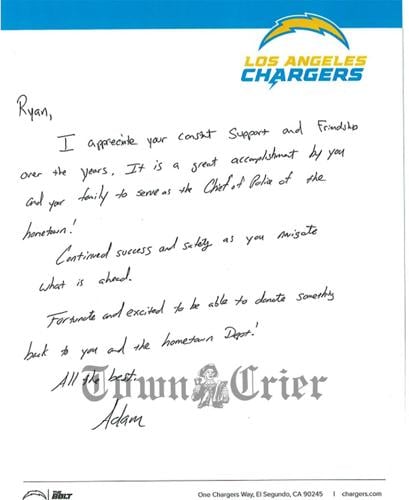 LOS ANGELES
CHARGERS
Ryan,
I appreciate your constnt Support and Friendship
over the years. It is a great accomplishment by you
and your family to serve as the Chief of Police of the
hometown!
Continued success and safety as you navigate
what is ahead.
Fortunate and excited to be able to donate something
back to you and the hometown Dept!
All the best.
Town Crier
Adam
BOLT
One Chargers Way, El Segundo, CA 90245 | chargers.com